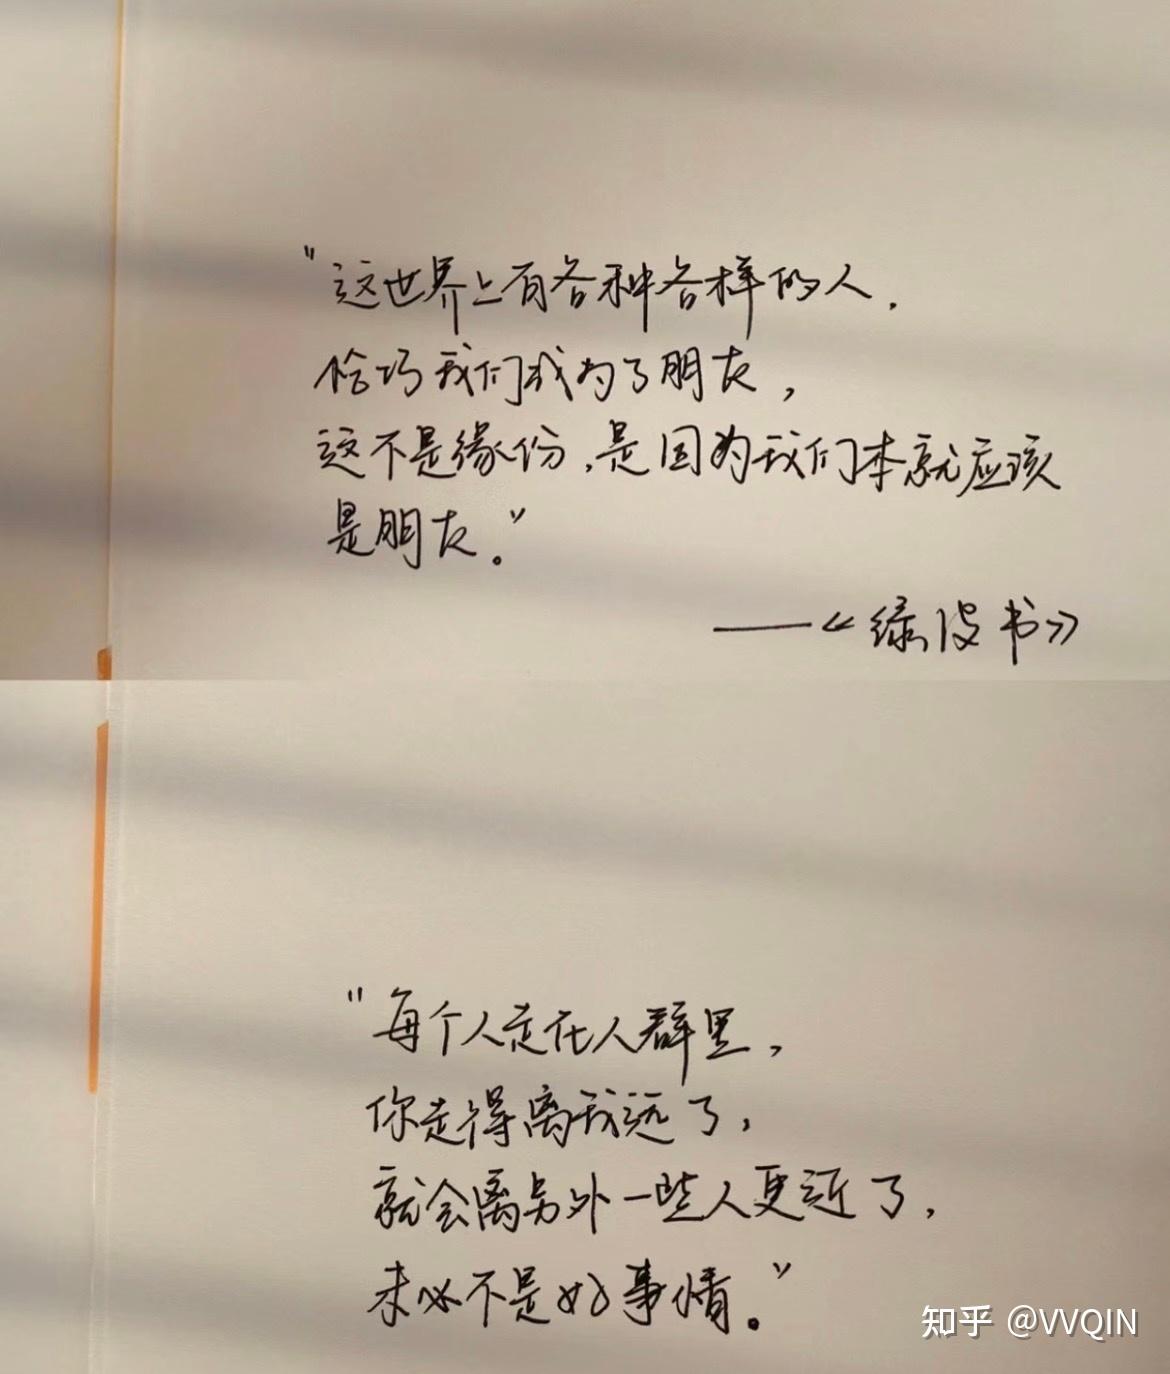 "这世界上有各种各样的人.
恰巧我们成为了朋友,
这不是缘份,是因为我们本就应该
是朋友。"
——《绿皮书》
"每个人走在人群里,
你走得离我远了,
就会离另外一些人更近了,
未必不是好事情。"
知乎 @VVQIN